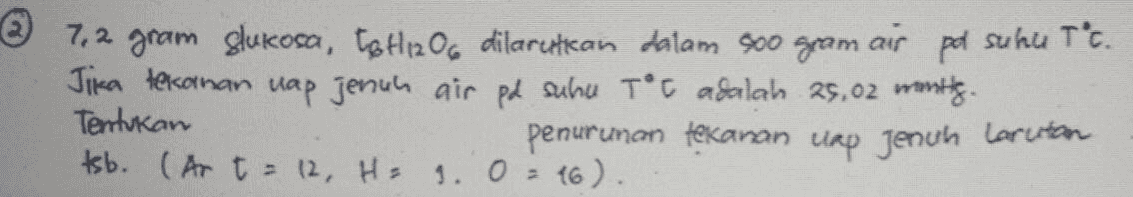 ② 7,2 gram glukosa, C6H12O6 dilarutkan dalam 500 gram air pd suhu T°C.
Jika tekanan uap jenuh air pd suhu T°C adalah 25,02 mmHg.
Tentukan penurunan tekanan uap jenuh larutan
tsb. (Ar C = 12, H = 1. O = 16).